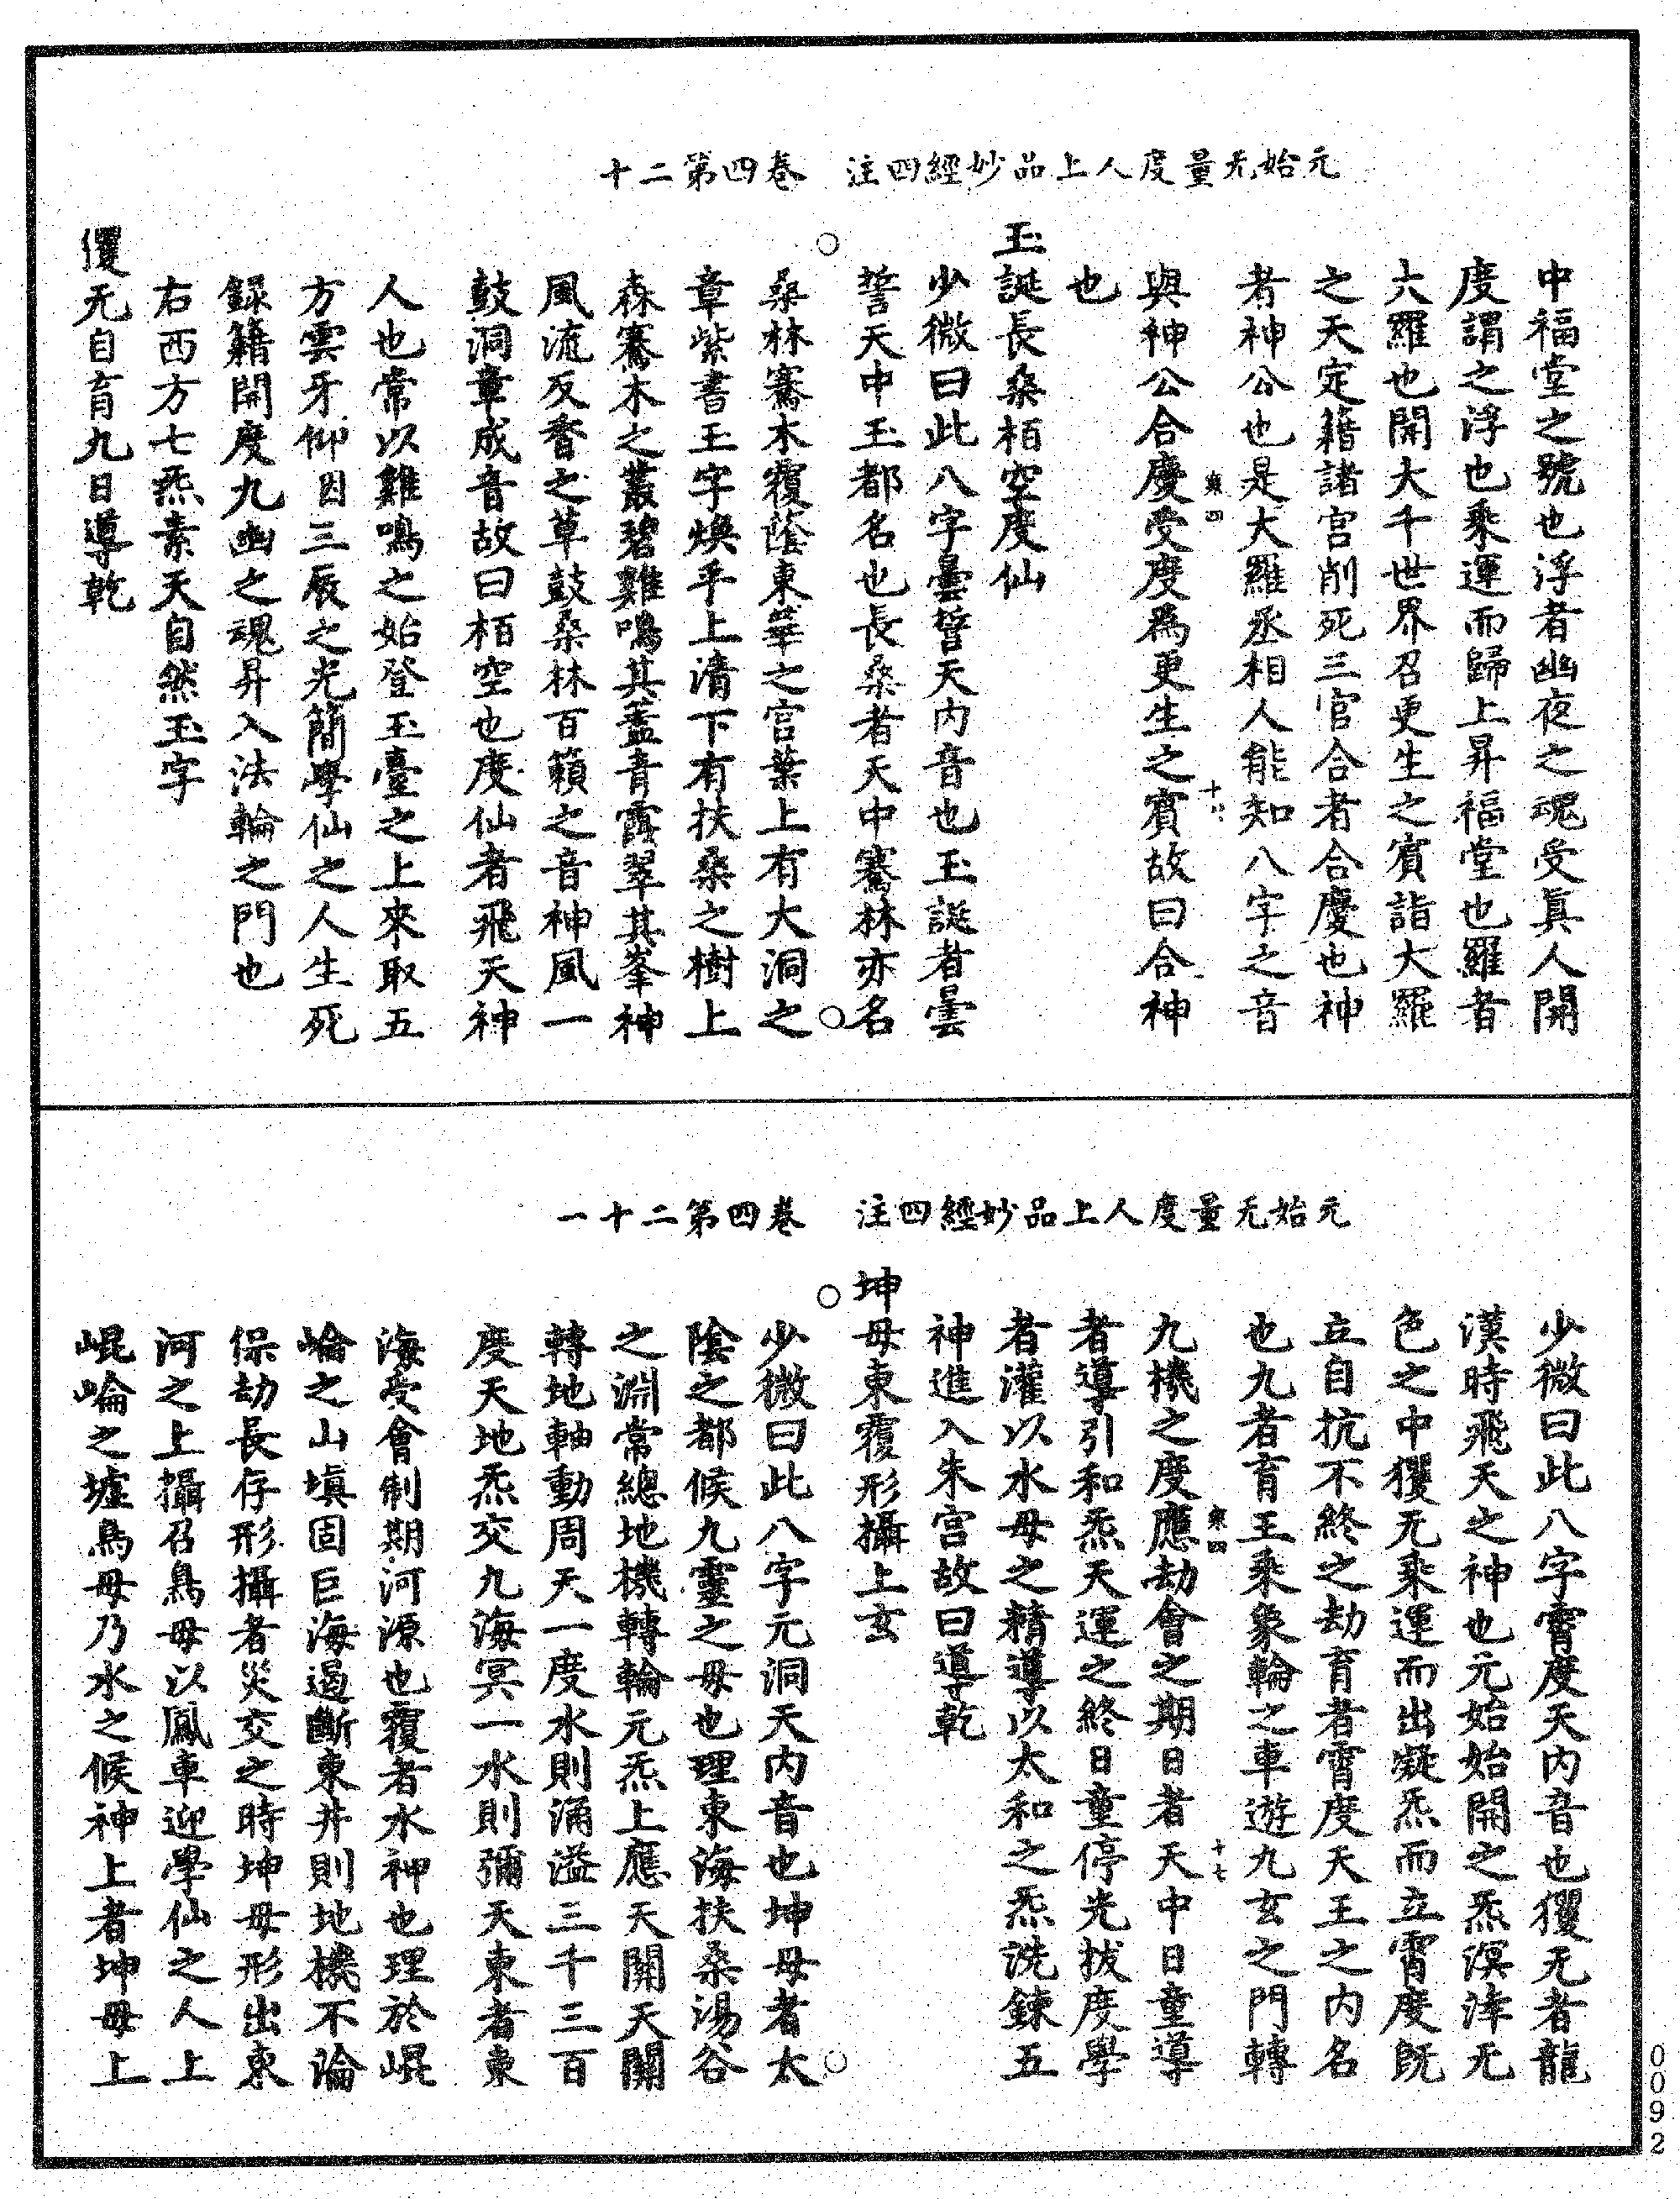 元始无量度人上品妙經四注　卷四第二十
中福堂之號也浮者幽夜之魂受真人開
度謂之浮也乘運而歸上昇福堂也羅者
大羅也開大千世界召更生之賓詣大羅
之天定籍諸宮削死三官合者合慶也神
者神公也是大羅丞相人能知八字之音
與神公合慶受度爲更生之賓故曰合神
也
玉誕長桑栢空度仙
少微曰此八字曇誓天内音也玉誕者曇
誓天中玉都名也長桑者天中騫林亦名
桑林騫木覆蔭東華之宮葉上有大洞之
章紫書玉字煥乎上清下有扶桑之樹上
森騫木之叢碧雞鳴其蓋青霞翠其峯神
風流反香之草鼓桑林百籟之音神風一
鼓洞章成音故曰栢空也度仙者飛天神
人也常以雞鳴之始登玉臺之上來取五
方雲牙仰因三辰之光簡學仙之人生死
録籍開度九幽之魂昇入法輪之門也
右西方七炁素天自然玉字
玃无自育九日導乾
元始无量度人上品妙經四注　卷四第二十一
少微曰此八字霄度天内音也玃无者龍
漢時飛天之神也元始始開之炁溟涬无
色之中玃无乘運而出凝炁而立霄度既
立自抗不終之劫育者霄度天王之内名
也九者育王乘象輪之車遊九玄之門轉
九機之度應劫會之期日者天中日童導
者導引和炁天運之終日童停光拔度學
者灌以水母之精導以太和之炁洗鍊五
神進入朱宮故曰導乾
坤母東覆形攝上玄
少微曰此八字元洞天内音也坤母者太
陰之都候九靈之母也理東海扶桑湯谷
之淵常總地機轉輪元炁上應天開天關
轉地軸動周天一度水則涌溢三千三百
度天地炁交九海冥一水則彌天東者東
海受會制期河源也覆者水神也理於崐
崘之山塡固巨海遏斷東井則地機不淪
保劫長存形攝者災交之時坤母形出東
河之上攝召鳥母以鳳車迎學仙之人上
崐崘之墟鳥母乃水之候神上者坤母上
0092